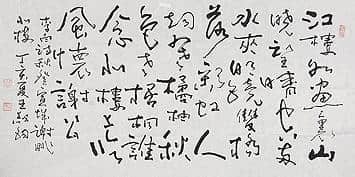 江樓如畫裏山
曉望晴空兩
水夾明鏡雙橋
落彩虹人
烟寒橘柚秋
色老梧桐誰
念北樓上臨
風懷謝公
李白詩秋登宣城謝朓
北樓 丁亥夏王